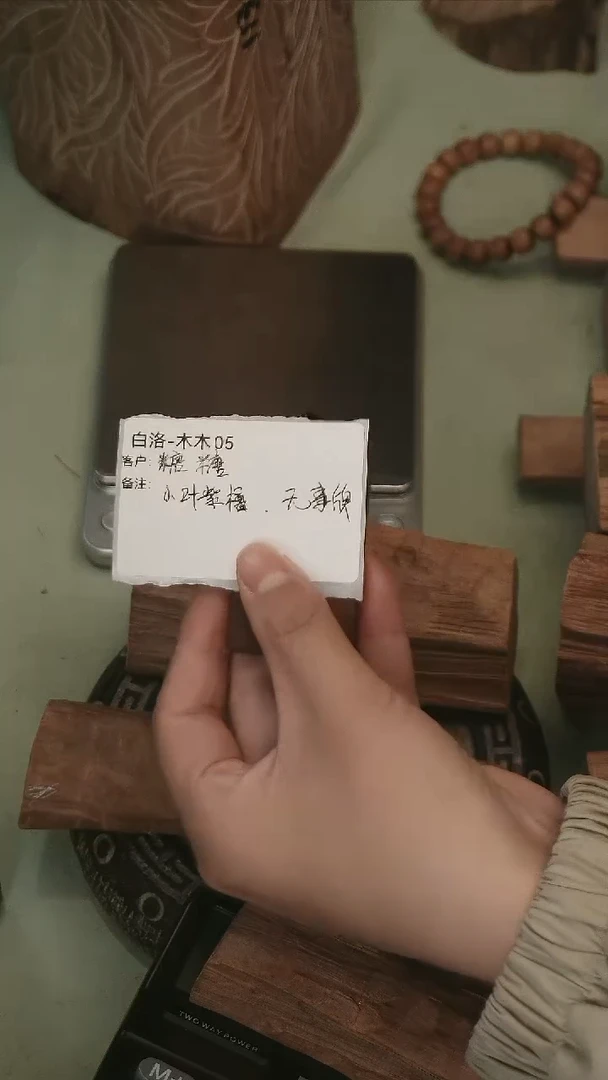 白洛-木木05
客户: 糖 糖
备注: 小叶紫檀 . 无事牌
TWO WAY POWER
M